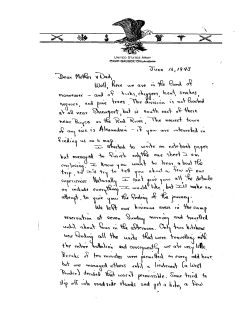 UNITED STATES ARMY
June 12, 1943
Dear Mother & Dad,
Well, here we are in the land of
maneuvers - and of bugs, chiggers, heat, snakes,
and pine trees. The division is not located
at all near Shreveport but is south east of there
near Boyce on the Red River. The nearest town
of any size is Alexandria - if you are interested in
finding us on a map.
I started to write on notebook paper
but managed to find only the one sheet I am
enclosing. I know you want to hear about the
trip, so I'll try to tell you about a few of our
experiences. Naturally, I can't give you all the details
or include everything I would like, but I'll make an
attempt to give you the feeling of the journey.
We left our bivouac area in the camp
reservation at seven Sunday morning and travelled
until about four in the afternoon. Only two kitchens
were feeding all the units that were travelling with
the entire battalion and consequently we ate very little
Breaks of ten minutes were permitted on every odd hour
but we managed others when a
Some tried to
slip off into roadside stands and get a bite, a few